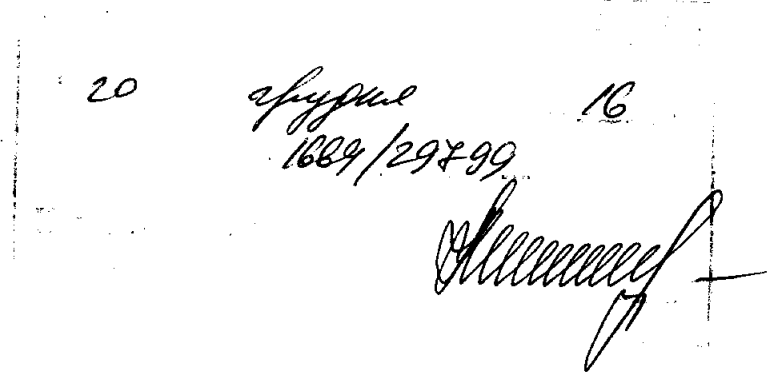 20 грудня 16
1669/29799